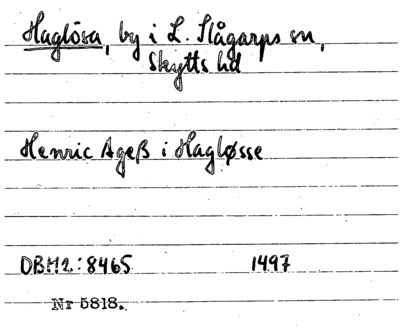 Haglösa, by i L. Slågarps sn,
Skytts hd
Henric Ageß i Hagløsse
DBM2:8465 1497
Nr 5818.